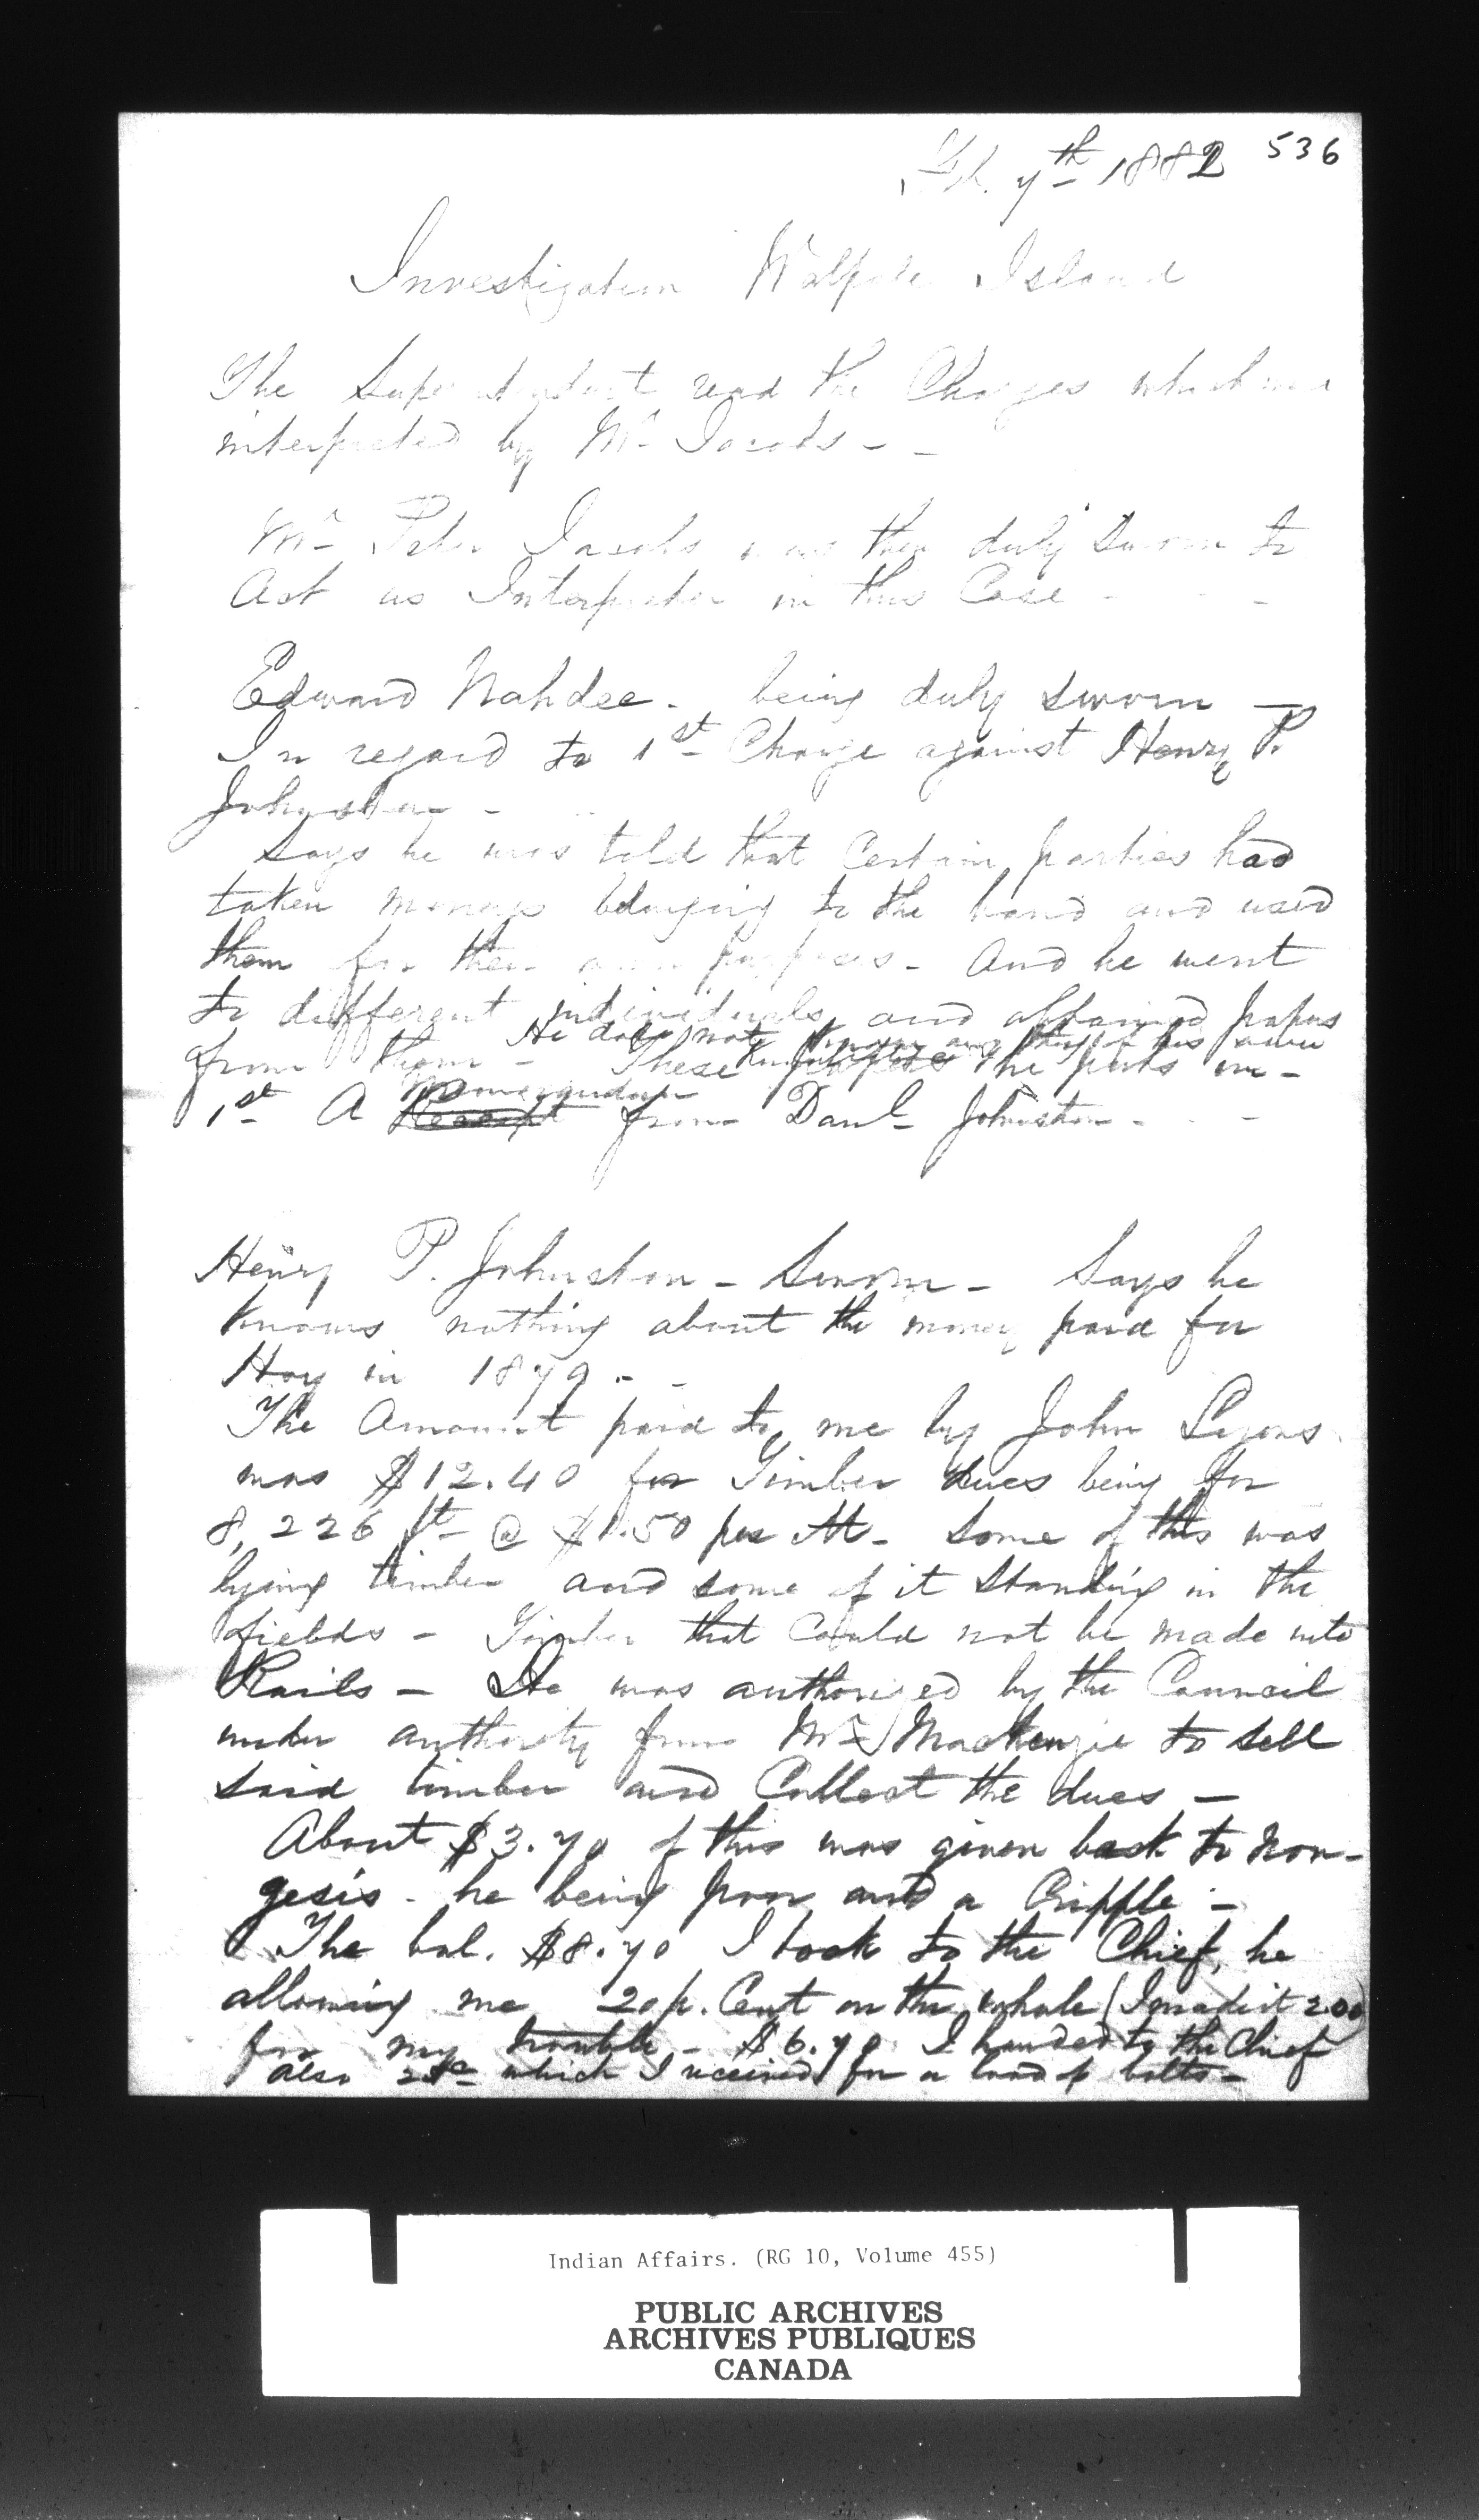 536
Feb. 7th 1882
Investigation Walpole Island
The Superintendent read the Charges which was
interpreted by Mr Jacobs - -
Mr Peter Jacobs was then duly Sworn to
Act as Interpreter in this Case - - -
Edward Nahdee - being duly sworn -
In regard to 1st Charge against Henry P.
Johnston -
Says he was told that Certain parties had
taken moneys belonging to the band and used
them for their own purposes - And he went
to different individuals and obtained papers
He does not know anything of his own
knowledge
from them - These papers he puts in -
Memorandum
1st A Receipt from Danl Johnston - - -
Henry P. Johnston - Sworn - Says he
knows nothing about the money paid for
Hay in 1879 - -
The Amount paid to me by John Lyons
was $12.40 for Timber dues being for
8,226 ft @ $1.50 per M - Some of this was
lying timber and some of it Standing in the
fields - Timber that Could not be made into
Rails - He was authorized by the Council
under authority from Mr Mackenzie to sell
said timber and Collect the dues -
About $3.70 of this was given back to Non-
gesis - he being poor and a Cripple -
The bal. $8.70 I took to the Chief, he
allowing me 20 p. Cent on the whole (I made it 2.00)
for my trouble - $6.70 I handed to the Chief
also which I received for a load of bolts -
Indian Affairs. (RG 10, Volume 455)
PUBLIC ARCHIVES
ARCHIVES PUBLIQUES
CANADA